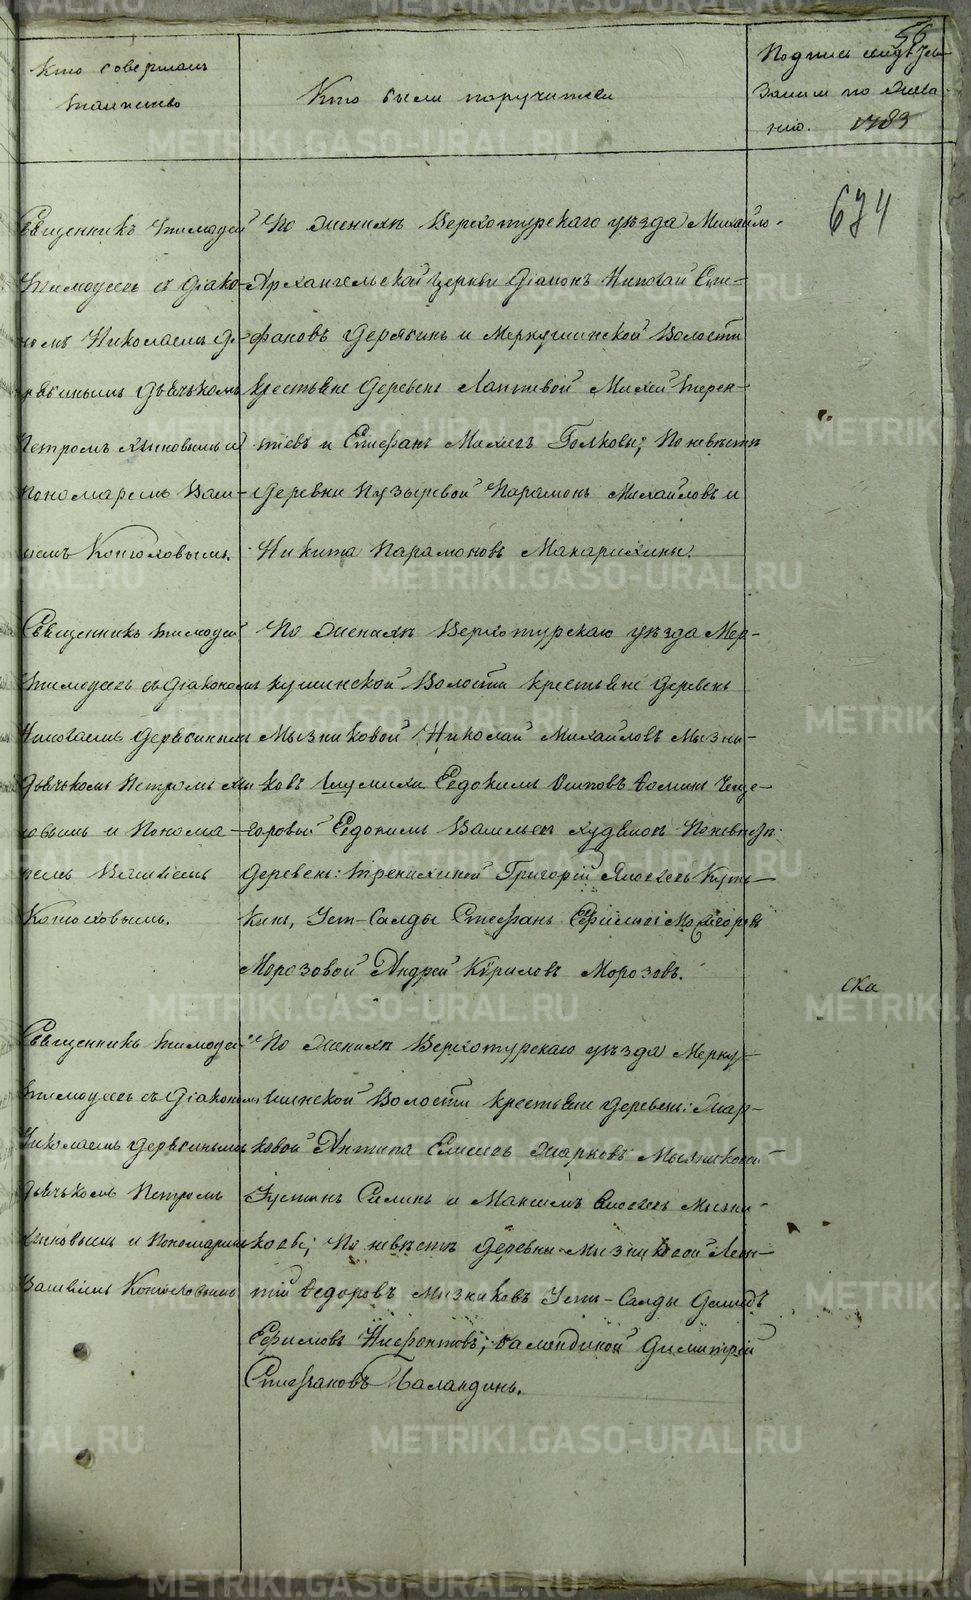 56
Кто совершалъ
таинство
Кто были поручители
Подпись свидѣте-
лей по жела-
нію. 1783
674
Священникъ Тимофей
Тимофеевъ съ діако-
номъ Николаемъ Де-
рябинымъ дьячкомъ
Петромъ Хлыновымъ и
пономаремъ Васи-
ліемъ Конюховымъ.
По женихѣ Верхотурскаго уѣзда Михайло-
Архангельской церкви діаконъ Николай Сте-
фановъ Дерябинъ и Меркушинской волости
крестьяне деревень Лаптевой Михей Терен-
тіевъ и Стефанъ Михеевъ Голковы; По невѣстѣ
деревни Пузыревой Парамонъ Михайловъ и
Никита Парамоновъ Макарихины.
Священникъ Тимофей
Тимофеевъ съ діакономъ
Николаемъ Дерябинымъ
дьячкомъ Петромъ Хлы
новымъ и Понома-
ремъ Василіемъ
Конюховымъ.
По женихѣ Верхотурскаго уѣзда Мер-
кушинской волости крестьяне деревень
Мызниковой Николай Михайловъ Мызни-
ковъ Евдокимъ Осиповъ
Евдокимъ По невѣстѣ
деревень: Григорій Яковлевъ
Усть-Салды Стефанъ
Морозовой Андрей Кириловъ Морозовъ.
Священникъ Тимофей
Тимофеевъ съ діакономъ
Николаемъ Дерябинымъ
дьячкомъ Петромъ
Хлыновымъ и Пономаремъ
Василіемъ Конюховымъ
По женихѣ Верхотурскаго уѣзда Мерку-
шинской волости крестьяне деревень: Жар-
ковой Антипа Елисеевъ Жарковъ Мызниковой
Устинъ Силинъ и Максимъ Яковлевъ Мызни-
ковы; По невѣстѣ деревни Мызниковой Леон-
тій Федоровъ Мызниковъ Усть-Салды Давидъ
Ефимовъ Нифонтовъ; Баландиной Димитрій
Стефановъ Баландинъ.
ска
METRIKI.GASO-URAL.RU